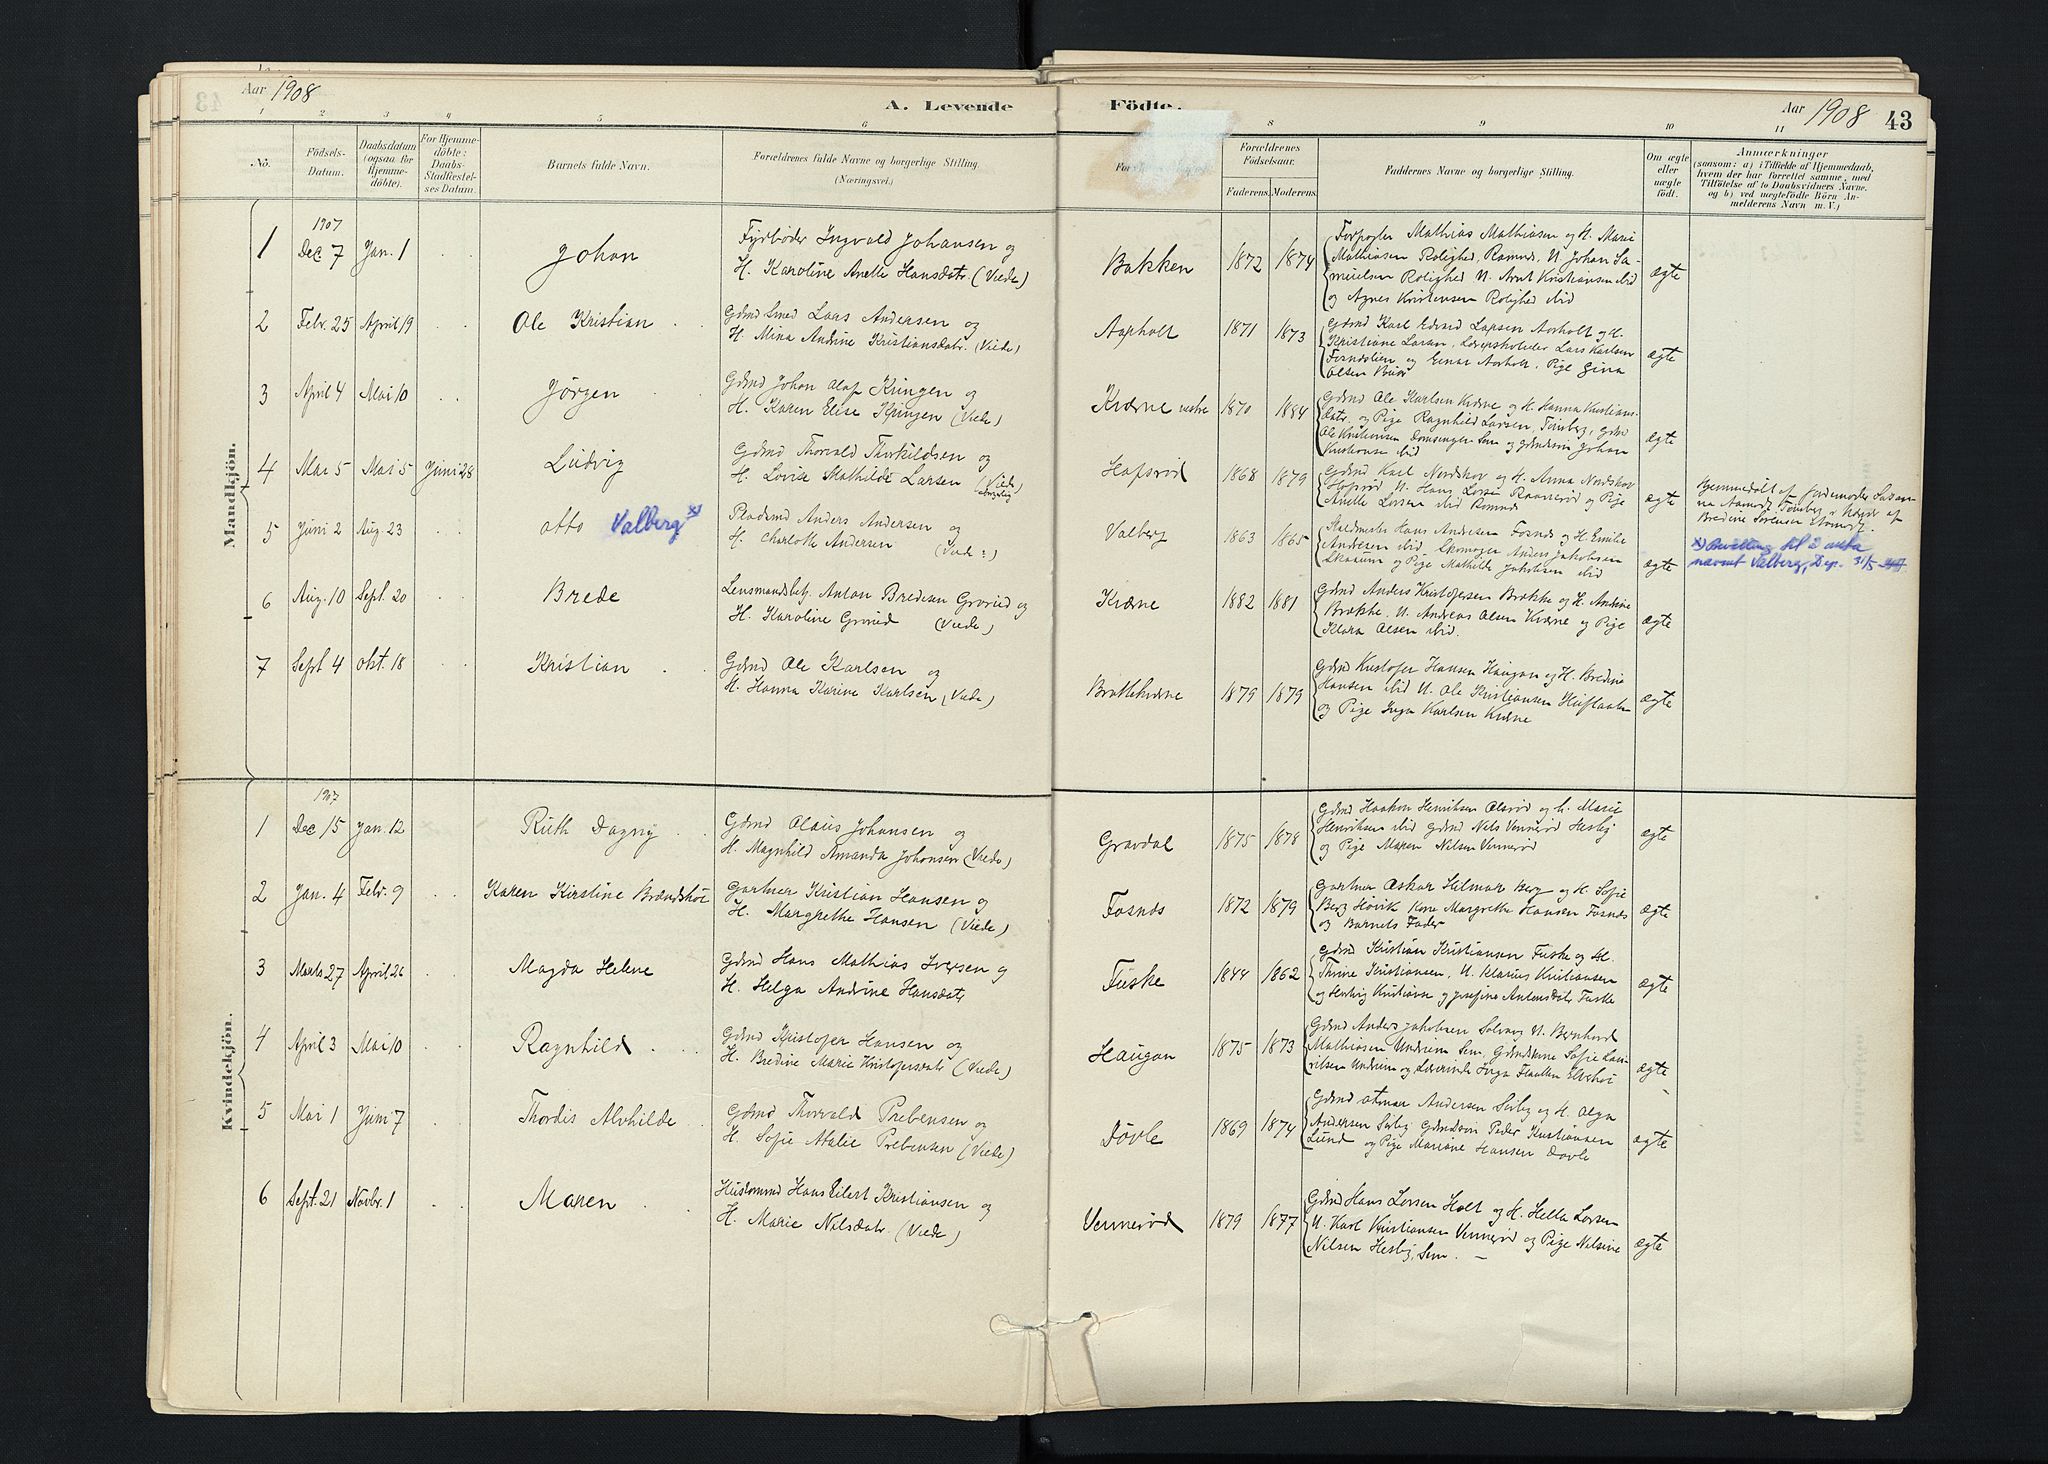 Aar 1908
A. Levende
Födte.
Aar 1908
43
1 2 3 4 5 6 8 9 10 11
No.
Födsels-
Datum.
Daabsdatum
(ogsaa for
Hjemme-
döbte).
For Hjemme-
döbte:
Daabs-
Stadfæstel-
ses Datum.
Barnets fulde Navn.
Forældrenes fulde Navne og borgerlige Stilling.
(Næringsvei.)
Forældrenes
Födselsaar.
Faderens. Moderens.
Faddernes Navne og borgerlige Stilling.
Om ægte
eller
uægte
födt.
Anmærkninger
(saasom: a) i Tilfælde af Hjemmedaab,
hvem der har forrettet samme, med
Tilföielse af to Daabsvidners Navne,
og b) ved uægtefödte Börn An-
melderens Navn m. V.)
Mandkjön.
1907
1 Dec 7 Jan. 1 Johan
Fyrböder Ingvald Johansen og
H. Karoline Anette Hansdatr. (Viede)
Bakken 1872 1874
Mathias Mathiasen og H. Marie
Mathiasen Rolighed, Ramnes, U. Johan Sa-
muelsen Rolighed U. Arnt Kristiansen ibid
og Agnes Kristensen Rolighed ibid
ægte
2 Febr. 25 April 19 Ole Kristian
Gdmd Smed Lars Andersen og
H. Mina Andrine Kristiansdatr. (Viede)
Aarholt 1871 1873
Gdmd Karl Edvard Larsen Aarholt og H.
Kristiane Larsen, Lars Karlsen
og Einar Aarholt, Pige Gina
Olsen
ægte
3 April 4 Mai 10 Jörgen
Gdmd Johan Olaf Kringen og
H. Karen Elise Kringen (Viede)
Kværne vestre 1870 1884
Gdmd Ole Karlsen Kværne og H. Hanna Kristians-
datr, og Pige Ragnhild Larsen, Tönsberg, gdmd
Ole Kristiansen Sem og Johan
Kristiansen ibid
ægte
4 Mai 5 Mai 5 Juni 28 Ludvig
Gdmd Thorvald Thorkildsen og
H. Lovise Mathilde Larsen (Viede
borgerlig)
Hafsröd 1868 1879
Gdmd Karl Nordskov og H. Anna Nordskov
Hafsröd U. Hans Larsen og Pige
Anette Larsen ibid Ramnes
ægte
Hjemmedöbt af Jordemoder Susan-
na Tönsberg i Nærvær af
Bredine Sörensen
5 Juni 2 Aug 23 Otto Valberg x)
Pladsmd Anders Andersen og
H. Charlotte Andersen (Viede:)
Valberg 1863 1865
Staldmester Hans Andersen Fosnes og H. Emilie
Andersen ibid, Skomager Anders Jakobsen
Skaanum og Pige Mathilde Jakobsen ibid
ægte
x) Bevilling til å anta
navnet Valberg, Dep. 31/5
6 Aug. 10 Sept. 20 Brede
Lensmandsbetj. Anton Bredesen Grorud og
H. Karoline Grorud (Viede)
Kværne 1882 1881
Gdmd Anders Kristofersen Brække og H. Andrine
Brække. U. Andreas Olsen Kværne og Pige
Klara Olsen ibid.
ægte
7 Sept 4 Okt. 18 Kristian
Gdmd Ole Karlsen og
H. Hanna Karine Karlsen (Viede)
Brattekværne 1879 1879
Gdmd Kristofer Hansen Haugan og H. Bredine
Hansen ibid U. Ole Kristiansen
og Pige Inga Karlsen Kværne
ægte
Kvindekjön.
1907
1 Dec 15 Jan. 12 Ruth Dagny
Gdmd Olaus Johansen og
H. Magnhild Amanda Johansen (Viede)
Gravdal 1875 1878
Gdmd Haakon Henriksen Olsröd og H. Marie
Henriksen ibid Gdmd Nils Venneröd Hesby
og Pige Maren Nilsen Venneröd
ægte
2 Jan. 4 Febr. 9 Karen Kirstine Brændshöi
Gartner Kristian Hansen og
H. Margrethe Hansen (Viede)
Fosnes 1872 1879
Gartner Oskar Hilmar Berg og H. Sofie
Berg Hövik Kone Margrethe Hansen Fosnes
og Barnets Fader
ægte
3 Marts 27 April 26 Magda Helene
Gdmd Hans Mathias Iversen og
H. Helga Andrine Hansdatr
Fuske 1844 1862
Gdmd Kristian Kristiansen Fuske og H.
Trine Kristiansen, U. Klarius Kristiansen
og Hedvig Kristiansen og Josefine Antonsdatr Fuske
ægte
4 April 3 Mai 10 Ragnhild
Gdmd Kristofer Hansen og
H. Bredine Marie Kristofersdatr (Viede)
Haugan 1875 1873
Gdmd Anders Jakobsen Solvang U. Bernhard
Mathiasen Undrum Sem, Gdmdskone Sofie Lau-
ritsen Undrum og Lærerinde Inga Flaatten Elvehöi
ægte
5 Mai 1 Juni 7 Thordis Alvhilde
Gdmd Thorvald Prebensen og
H. Sofie Amalie Prebensen (Viede)
Dövle 1869 1874
Gdmd Otmar Andersen Seeby og H. Olga
Andersen Seeby Gdmdsön Peder Kristiansen
Lund og Pige Mariane Hansen Dövle
ægte
6 Sept. 21 Novbr. 1 Maren
Husmand Hans Eilert Kristiansen og
H. Marie Nilsdatr. (Viede)
Venneröd 1879 1877
Gdmd Hans Larsen Holt og H. Hella Larsen
U. Karl Kristiansen Venneröd og Pige Nilsine
Nilsen Hesby, Sem.
ægte